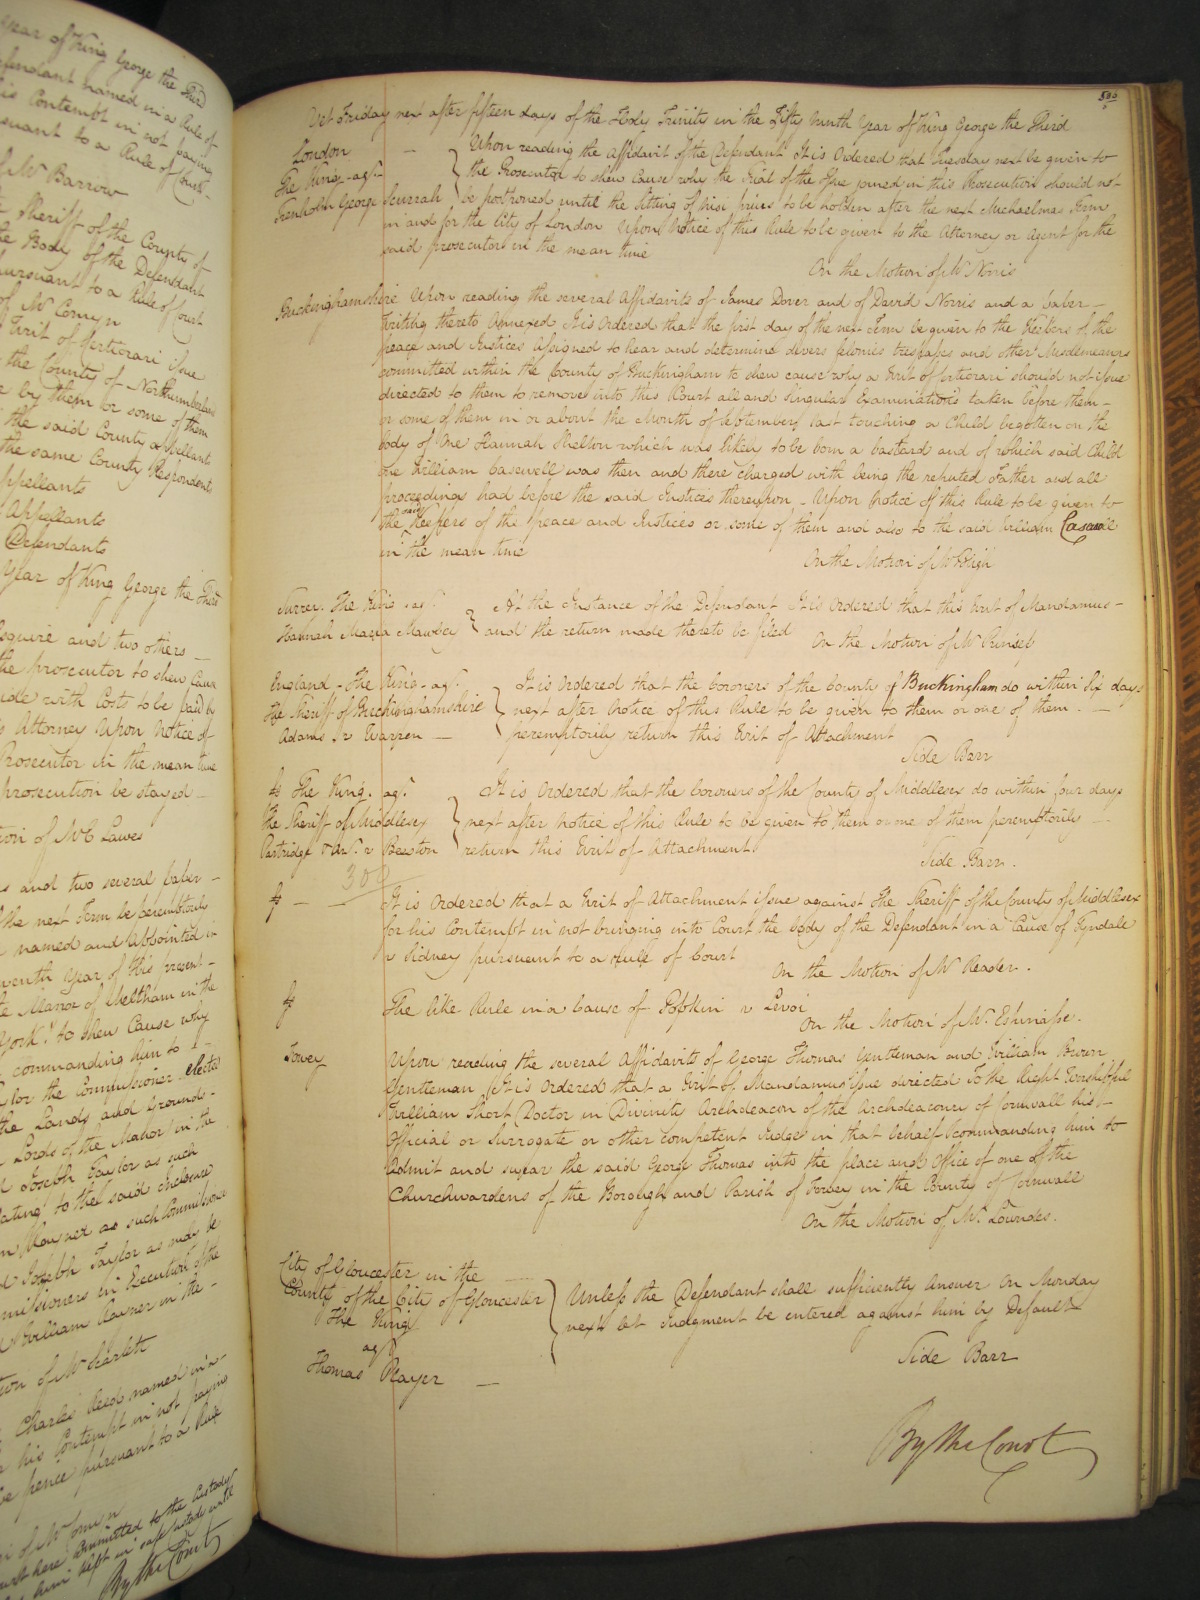 year of King George the Third
Defendant named in a Rule of
his Contempt in not paying
pursuant to a Rule of Court
of Mr Barrow
Sheriff of the County of
the Body of the Defendant
pursuant to a Rule of Court
of Mr Comyn
Writ of Certiorari issue
the County of Northumberland
by them or some of them
the said County appellant
the same County Respondent
Appellants
Appellants
Defendants
Year of King George the Third
Esquire and two others
the prosecutor to shew Cause
aside with Costs to be paid by
Attorney Upon Notice of
Prosecutor in the mean time
prosecution be stayed
of Mr E Lawes
and two several paper
the next Term be peremptorily
named and appointed in
year of this present
Manor of Meltham in the
York to shew Cause why
commanding him to
for the Commissioner elected
the Lands and Grounds
Lords of the Manor in the
Joseph Taylor as such
to the said inclosure
as such Commissioner
Joseph Taylor as may be
Commissioners in Execution of the
William Rayner in the
of Mr Scarlett
Charles Reed named in a
his Contempt in not paying
pence pursuant to a Rule
of Mr Comyn
here Committed to the Custody
kept in safe Custody until
By the Court
500
Yet Friday next after fifteen days of the Holy Trinity in the Fifty Ninth Year of King George the Third
London — Upon reading the Affidavit of the Defendant It is Ordered that Tuesday next be given to
The King agt. the Prosecutor to shew Cause why the Trial of the Issue joined in this Prosecution should not
George Scurrah be postponed until the Sitting of Nisi prius to be holden after the next Michaelmas Term
in and for the City of London Upon Notice of this Rule to be given to the Attorney or Agent for the
said prosecutors in the mean time
On the Motion of Mr Norris
Buckinghamshire Upon reading the several Affidavits of James Dover and of David Norris and a paper
Writing thereto Annexed It is Ordered that the first day of the next Term be given to the Keepers of the
peace and Justices Assigned to hear and determine divers felonies trespasses and other Misdemeanors
committed within the County of Buckingham to shew cause why a Writ of Certiorari should not issue
directed to them to remove into this Court all and Singular Examinations taken before them
or some of them in or about the Month of September last touching a Child begotten on the
body of one Hannah Skelton which was likely to be born a bastard and of which said Child
one William Casewell was then and there charged with being the reputed Father and all
proceedings had before the said Justices thereupon Upon Notice of this Rule to be given to
the said Keepers of the peace and Justices or some of them and also to the said William Casewell
in the mean time
On the Motion of Mr
Surrey. The King agt. At the Instance of the Defendant It is Ordered that this Writ of Mandamus
Hannah Maria Mawbey and the return made thereto be filed
On the Motion of Mr Prinsep
England – The King – agt. It is Ordered that the Coroners of the County of Buckingham do within Six days
the Sheriff of Buckinghamshire next after Notice of this Rule to be given to them or one of them
Adams v Warren — peremptorily return this Writ of Attachment
Side Barr
The King agt. It is Ordered that the Coroners of the County of Middlesex do within four days
the Sheriff of Middlesex next after Notice of this Rule to be given to them or one of them peremptorily
Partridge & Anr. v Beeston return this Writ of Attachment
Side Barr.
300
It is Ordered that a Writ of Attachment issue against The Sheriff of the County of Middlesex
for his Contempt in not bringing into Court the body of the Defendant in a Cause of Tyndale
v Sidney pursuant to a rule of Court
On the Motion of Mr Reader.
The like Rule in a Cause of Popkin v Levoi
On the Motion of Mr. Espinasse.
Fowey Upon reading the several Affidavits of George Thomas Gentleman and William Brown
Gentleman It is Ordered that a Writ of Mandamus issue directed To the Right Worshipful
William Short Doctor in Divinity Archdeacon of the Archdeaconry of Cornwall his
Official or Surrogate or other competent Judge in that behalf Commanding him to
Admit and swear the said George Thomas into the place and Office of one of the
Churchwardens of the Borough and Parish of Fowey in the County of Cornwall
On the Motion of Mr. Lowndes.
City of Gloucester in the
County of the City of Gloucester Unless the Defendant shall sufficiently Answer On Monday
The King next let Judgment be entered against him by Default
agt.
Thomas Player — Side Barr
By the Court